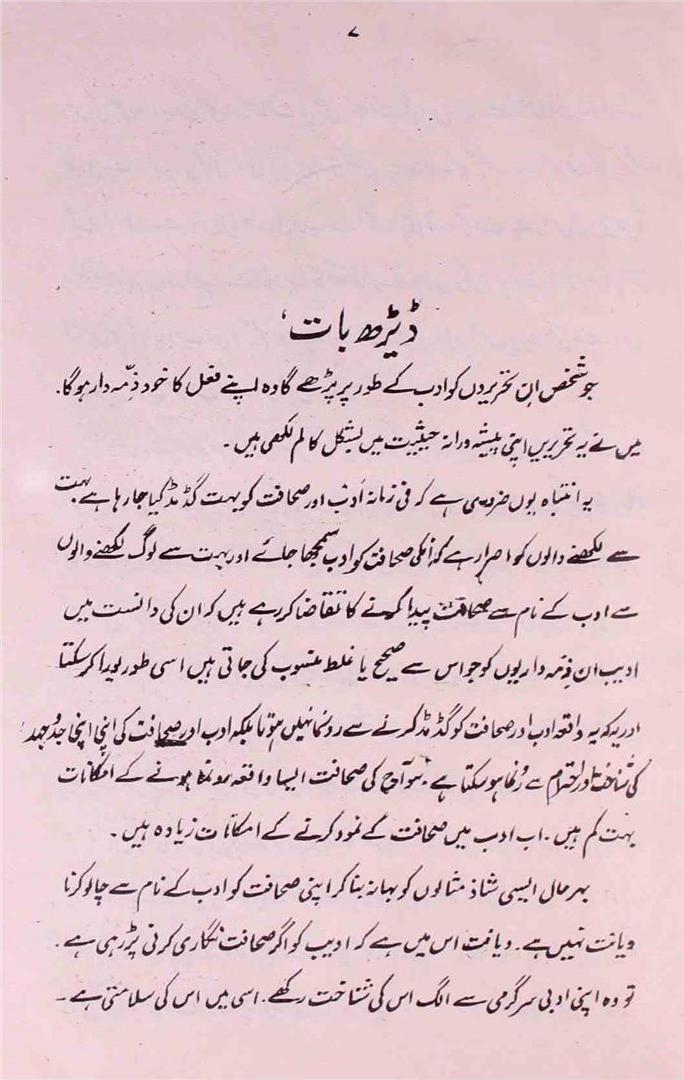 ۷
ڈیڑھ بات'
جو شخص ان تحریروں کو ادب کے طور پر پڑھے گا وہ اپنے فعل کا خود ذمّہ دار ہوگا.
میں نے یہ تحریریں اپنی پیشہ ورانہ حیثیت میں بشکل کالم لکھی ہیں ۔
یہ انتباہ یوں ضروری ہے کہ فی زمانہ ادب اور صحافت کو بہت گڈ مڈ کیا جا رہا ہے بہت
سے لکھنے والوں کو اصرار ہے کہ انکی صحافت کو ادب سمجھا جائے اور بہت سے لوگ لکھنے والوں
سے ادب کے نام سے صحافت پیدا کرنے کا تقاضا کر رہے ہیں کہ ان کی دانست میں
ادیب ان ذمہ داریوں کو جو اس سے صحیح یا غلط منسوب کی جاتی ہیں اسی طور پورا کر سکتا
اور یہ کہ یہ واقعہ ادب اور صحافت کو گڈ مڈ کرنے سے رونما نہیں ہوتا بلکہ ادب اور صحافت کی اپنی اپنی جدوجہد
کی شناخت اور احترام سے رونما ہو سکتا ہے سو آج کی صحافت ایسا واقعہ رونما ہونے کے امکانات
بہت کم ہیں . اب ادب میں صحافت کے نمود کرنے کے امکانات زیادہ ہیں ۔
بہر حال ایسی شاذ مثالوں کو بہانہ بنا کر اپنی صحافت کو ادب کے نام سے چالو کرنا
دیانت نہیں ہے . دیانت اس میں ہے کہ ادیب کو اگر صحافت نگاری کرنی پڑ رہی ہے .
تو وہ اپنی ادبی سرگرمی سے الگ اس کی شناخت رکھے . اسی میں اس کی سلامتی ہے ۔